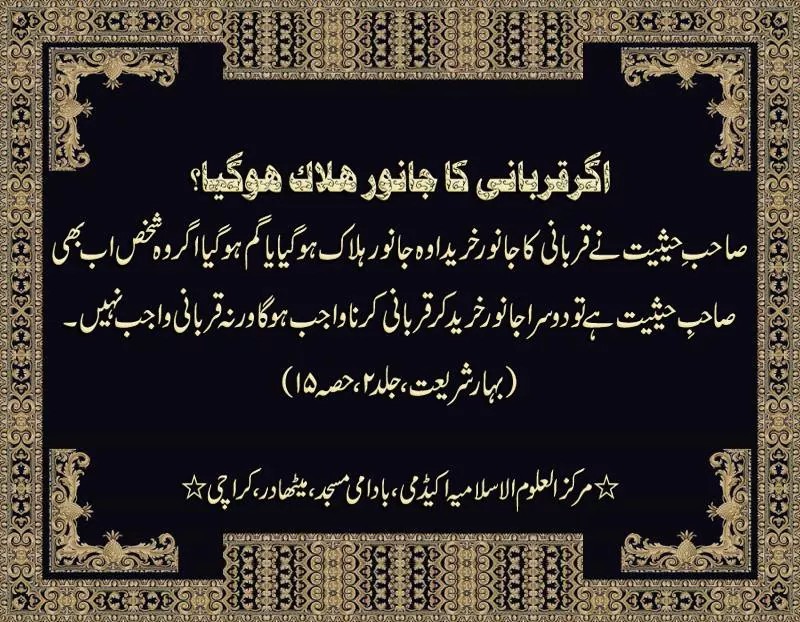 اگر قربانی کا جانور ھلاک ھوگیا؟
صاحبِ حیثیت نے قربانی کا جانور خریدا وہ جانور ہلاک ہوگیا یا گم ہوگیا اگر وہ شخص اب بھی
صاحبِ حیثیت ہے تو دوسرا جانور خرید کر قربانی کرنا واجب ہوگا ورنہ قربانی واجب نہیں۔
(بہار شریعت، جلد ۲، حصہ ۱۵)
☆مرکز العلوم الاسلامیہ اکیڈمی، بادامی مسجد، میٹھادر، کراچی☆